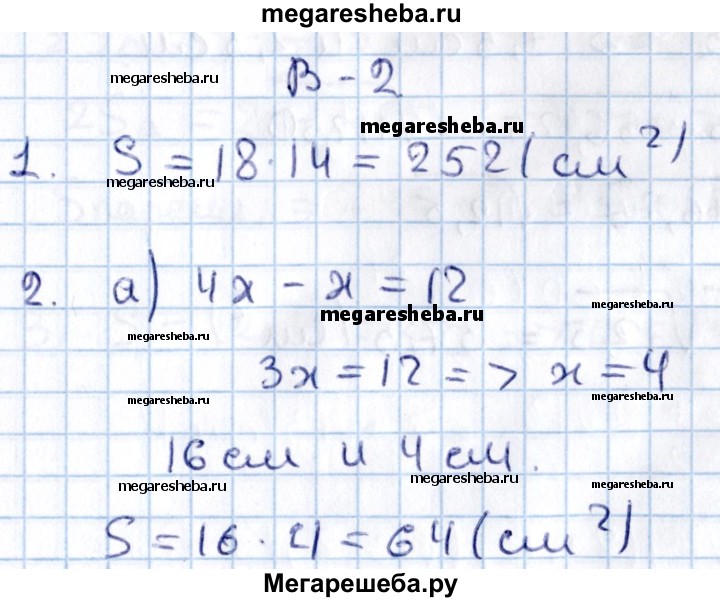 megaresheba.ru
megaresheba.ru
В - 2
megaresheba.ru
1. S = 18 · 14 = 252 (см²)
megaresheba.ru
2. а) 4x - x = 12
megaresheba.ru
megaresheba.ru
megaresheba.ru
3x = 12 => x = 4
megaresheba.ru
megaresheba.ru
16 см и 4 см.
megaresheba.ru
megaresheba.ru
megaresheba.ru
S = 16 · 4 = 64 (см²)
Мегарешеба.ру